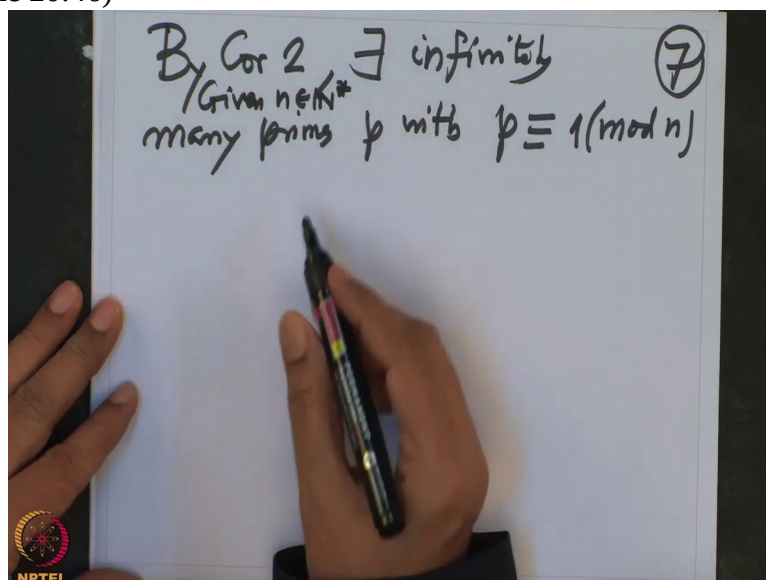 By Cor 2, ∃ infinitely
Given n∈ℕ*
many primes p with p ≡ 1 (mod n)
7
NPTEL